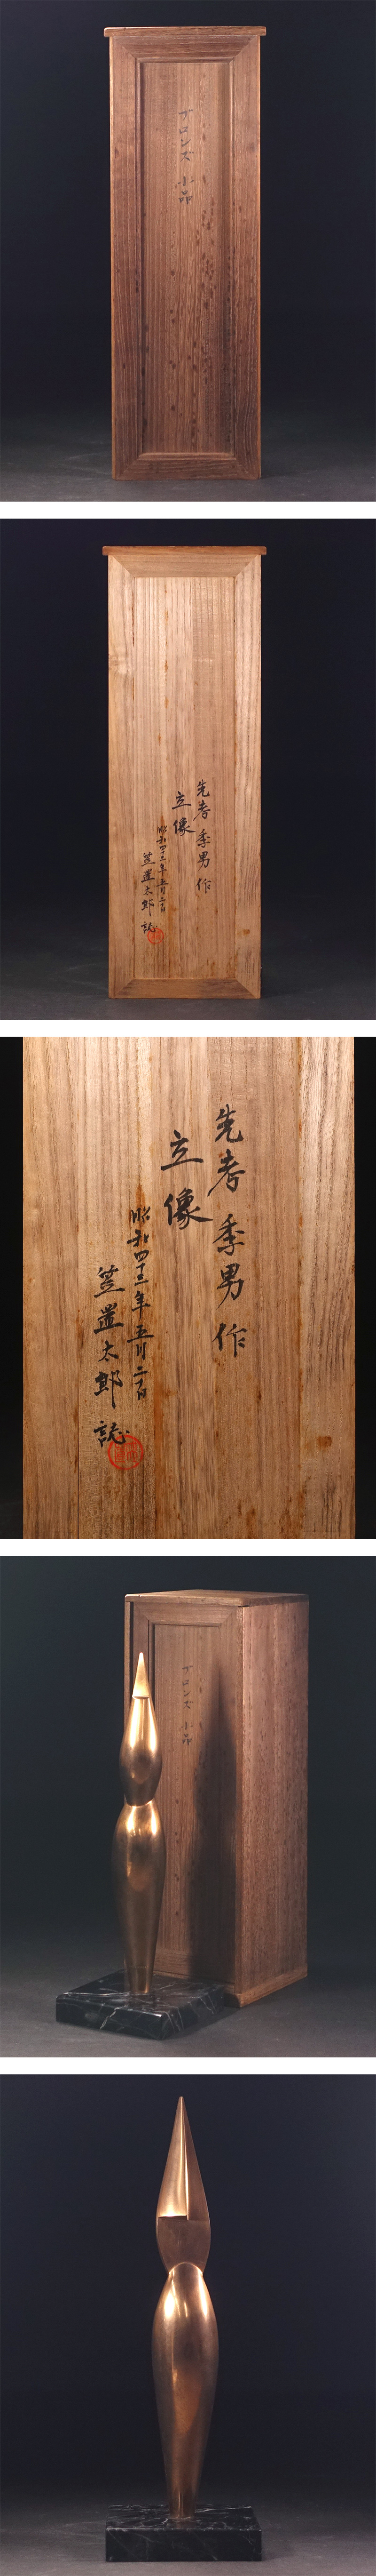 ブロンズ 小品
先考 季男 作
立像
昭和四十三年五月二十日
笠置太郎 誌
先考 季男 作
立像
昭和四十三年五月二十日
笠置太郎 誌
ブロンズ 小品